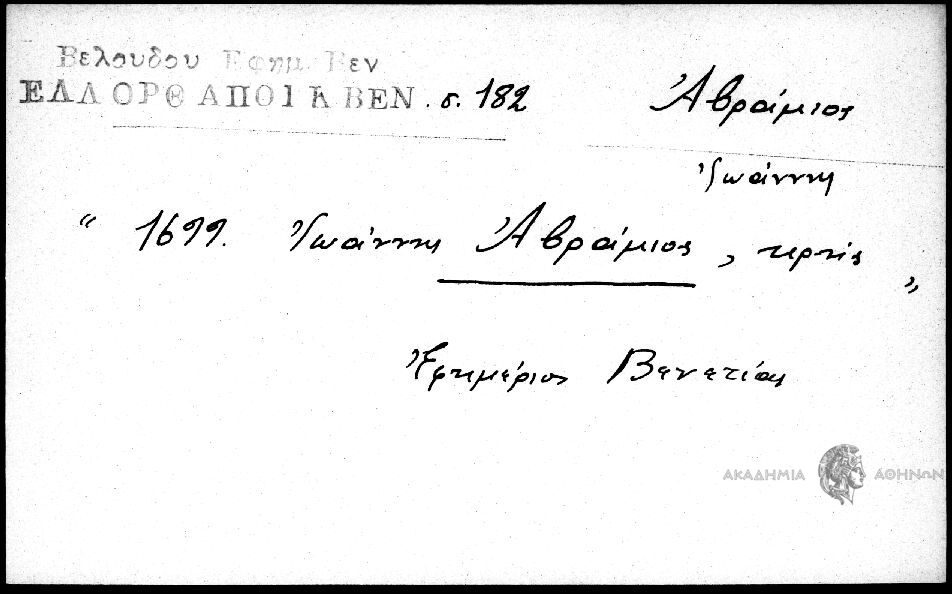 Βελουδου Εφημ. Βεν
ΕΛΛ ΟΡΘ ΑΠΟΙΚ ΒΕΝ. σ. 182
Ἀβράμιος
Ἰωάννης
“ 1699. Ἰωάννης Ἀβράμιος, κρής „
Ἐφημέριος Βενετίας
ΑΚΑΔΗΜΙΑ ΑΘΗΝΩΝ